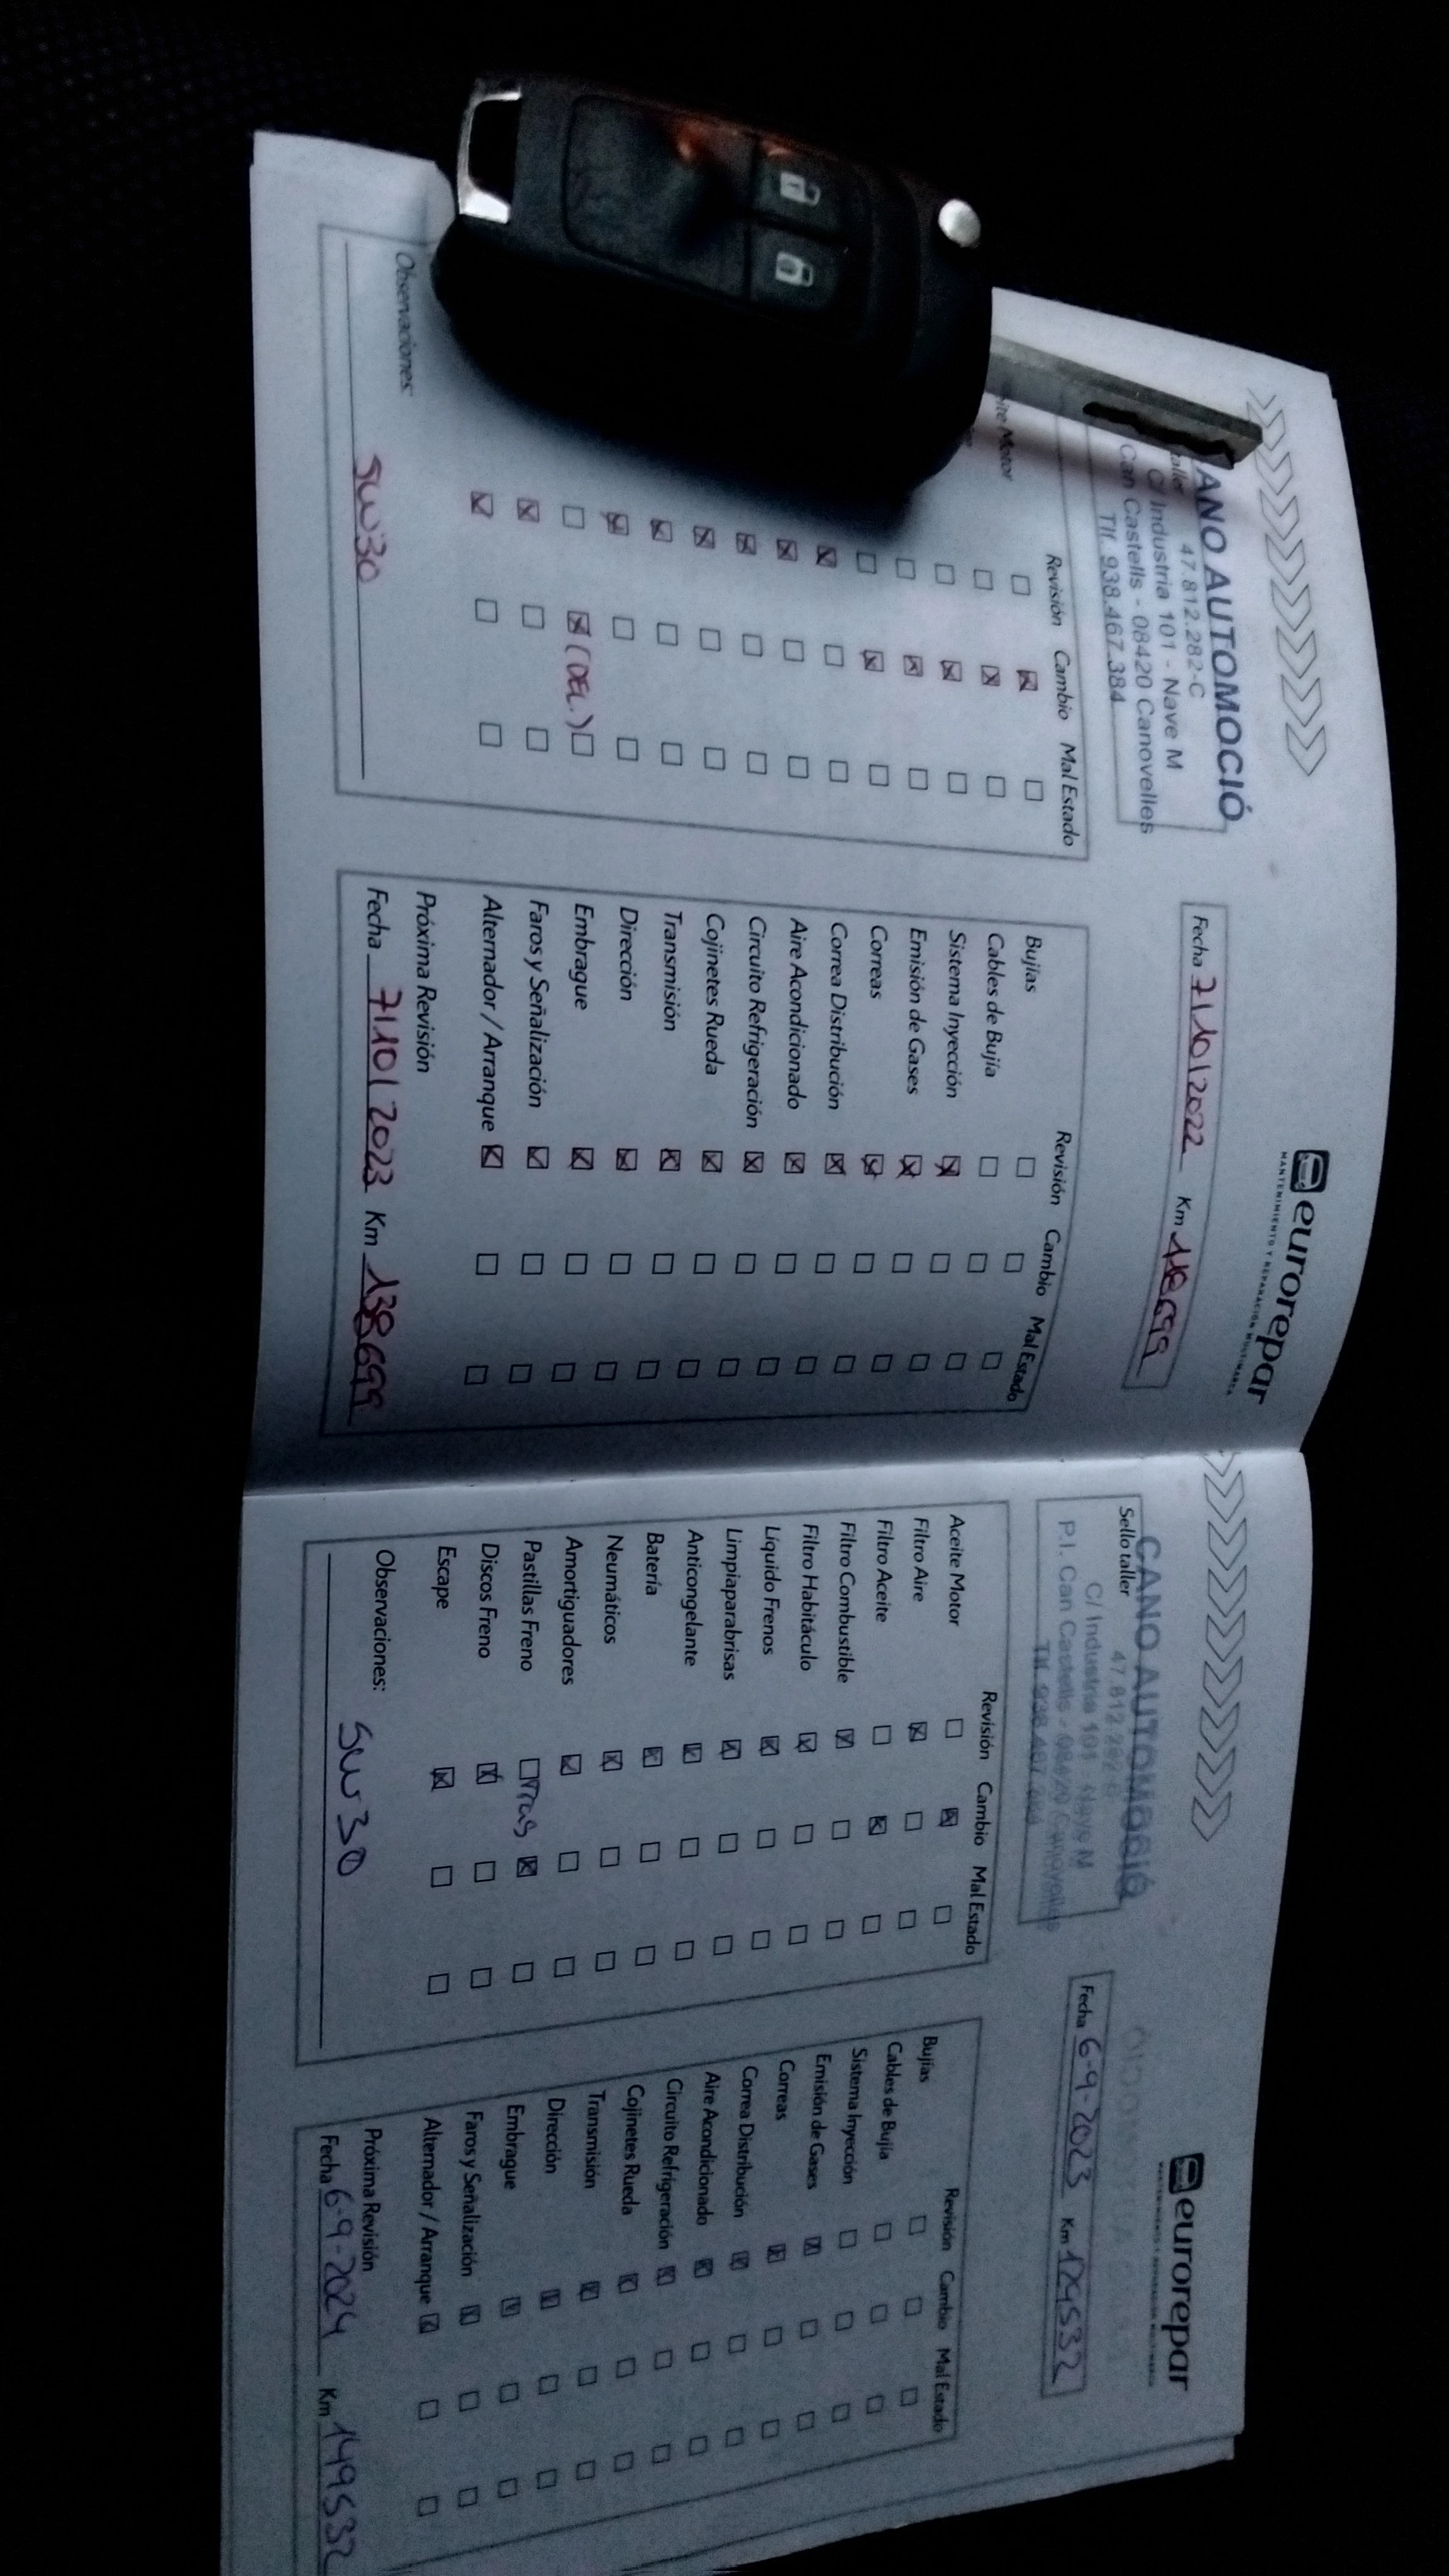 eurorepar
MANTENIMIENTO Y REPARACIÓN MULTIMARCA
ANO AUTOMOCIÓ
47.812.282-C
C/ Industria 101 - Nave M
Can Castells - 08420 Canovelles
Tlf. 938.467.384
Fecha 7/10/2022 Km 118699
Revisión Cambio Mal Estado
ite Motor
(DEL.)
Observaciones:
5W30
Revisión Cambio Mal Estado
Bujías
Cables de Bujía
Sistema Inyección
Emisión de Gases
Correas
Correa Distribución
Aire Acondicionado
Circuito Refrigeración
Cojinetes Rueda
Transmisión
Dirección
Embrague
Faros y Señalización
Alternador / Arranque
Próxima Revisión
Fecha 7/10/2023 Km 138699
eurorepar
CANO AUTOMOCIÓ
Sello taller
47.812.282-C
C/ Industria 101 - Nave M
P.I. Can Castells - 08420 Canovelles
Tlf. 938.467.384
Fecha 6-9-2023 Km 129532
Revisión Cambio Mal Estado
Aceite Motor
Filtro Aire
Filtro Aceite
Filtro Combustible
Filtro Habitáculo
Líquido Frenos
Limpiaparabrisas
Anticongelante
Batería
Neumáticos
Amortiguadores
Pastillas Freno Tras
Discos Freno
Escape
Observaciones:
5W30
Revisión Cambio Mal Estado
Bujías
Cables de Bujía
Sistema Inyección
Emisión de Gases
Correas
Correa Distribución
Aire Acondicionado
Circuito Refrigeración
Cojinetes Rueda
Transmisión
Dirección
Embrague
Faros y Señalización
Alternador / Arranque
Próxima Revisión
Fecha 6-9-2024 Km 149532